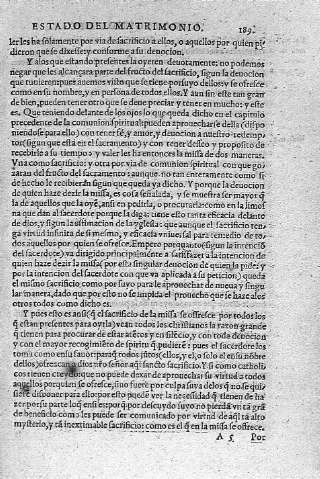 ESTADO DEL MATRIMONIO. 189.
ler les ha solamente por via de sacrificio a ellos, o aquellos por quien pi
dieron que se dixesse y conforme a su deuocion.
Y a los que estando presentes la oyeren deuotamente: no podemos
negar que les alcançara parte del fructo del sacrificio, segun la deuocion
q̃ tuuieren: pues auemos visto que se tiene por suyo dellos y se ofresce
como en su nombre, y en persona de todos ellos. Y aun sin este tan gran
de bien, pueden tener otro que se deue preciar y tener en mucho: y este
es. Que teniendo delante de los ojos lo que queda dicho en el capitulo
precedente de la comunion spiritual: pueden aprouecharse della (dispo
niendose para ello) con tener fe, y amor, y deuocion a nuestro redemp-
tor (segun que esta en el sacramento) y con tener desseo y proposito de
recebirlo a su tiempo: y valer les ha entonces la missa de dos maneras.
Vna como sacrificio: y otra por via de communion spiritual con que go
zaran del fructo del sacramento: aunque no tan enteramente como si
de hecho le recibieran segun que queda ya dicho. Y porque la deuocion
de quien haze dezir la missa, es cosa señalada, y se muestra ser mayor q̃
la de aquellos que la oyẽ, ansi en pedirla, o procurarla: como en la limos
na que dan al sacerdote porque la diga: tiene esto tanta eficacia delante
de dios, y segun la estimacion de la yglesia: que aunque el sacrificio ten-
ga virtud infinita de si mesmo, y eficacia vniuersal para remedio de to-
dos aquellos por quien se ofresce. Empero por quanto (segun la intenciõ
del sacerdote) va dirigido principalmente a satisfazer a la intencion de
quien haze dezir la missa: por esta singular deuocion de quien la pide: y
por la intencion del sacerdote con que va aplicada a su peticion) queda
el mismo sacrificio como por suyo para le aprouechar de nueua y singu
lar manera, dado que por esto no se impida el prouecho que se haze a los
otros todos como dicho es.
Y pues esto es ansi q̃ el sacrificio de la missa se ofresce por todos los
q̃ estan presentes para oyrla) vean todos los christianos la razon grande
q̃ tienen para procurar de estar atẽtos y en silẽcio, y con toda deuocion
y con el mayor recogimiẽto de spiritu q̃ pudierẽ: pues el sacerdote los
toma como en su fauor: para q̃ todos jũtos (ellos, y el, o solo el en su nõbre
dellos) ofrezcan a dios nr̃o señor aq̃l sancto sacrificio. Y si como catholi
cos tienen creydo que no puede dexar de aprouechar su virtud a todos
aquellos por quien se ofresce, sino fuere por culpa suya dellos q̃ no se qui
siere disponer para ello: por esto puedẽ ver la necesidad q̃ tienen de ha
zer por su parte lo q̃ en si es: por q̃ por descuydo suyo no pierdã vn tã grã
de beneficio como les puede ser comunicado por virtud de aq̃l tã alto
mysterio, y tã inextimable sacrificio: como es el q̃ en la missa se ofresce.
A 5 Por